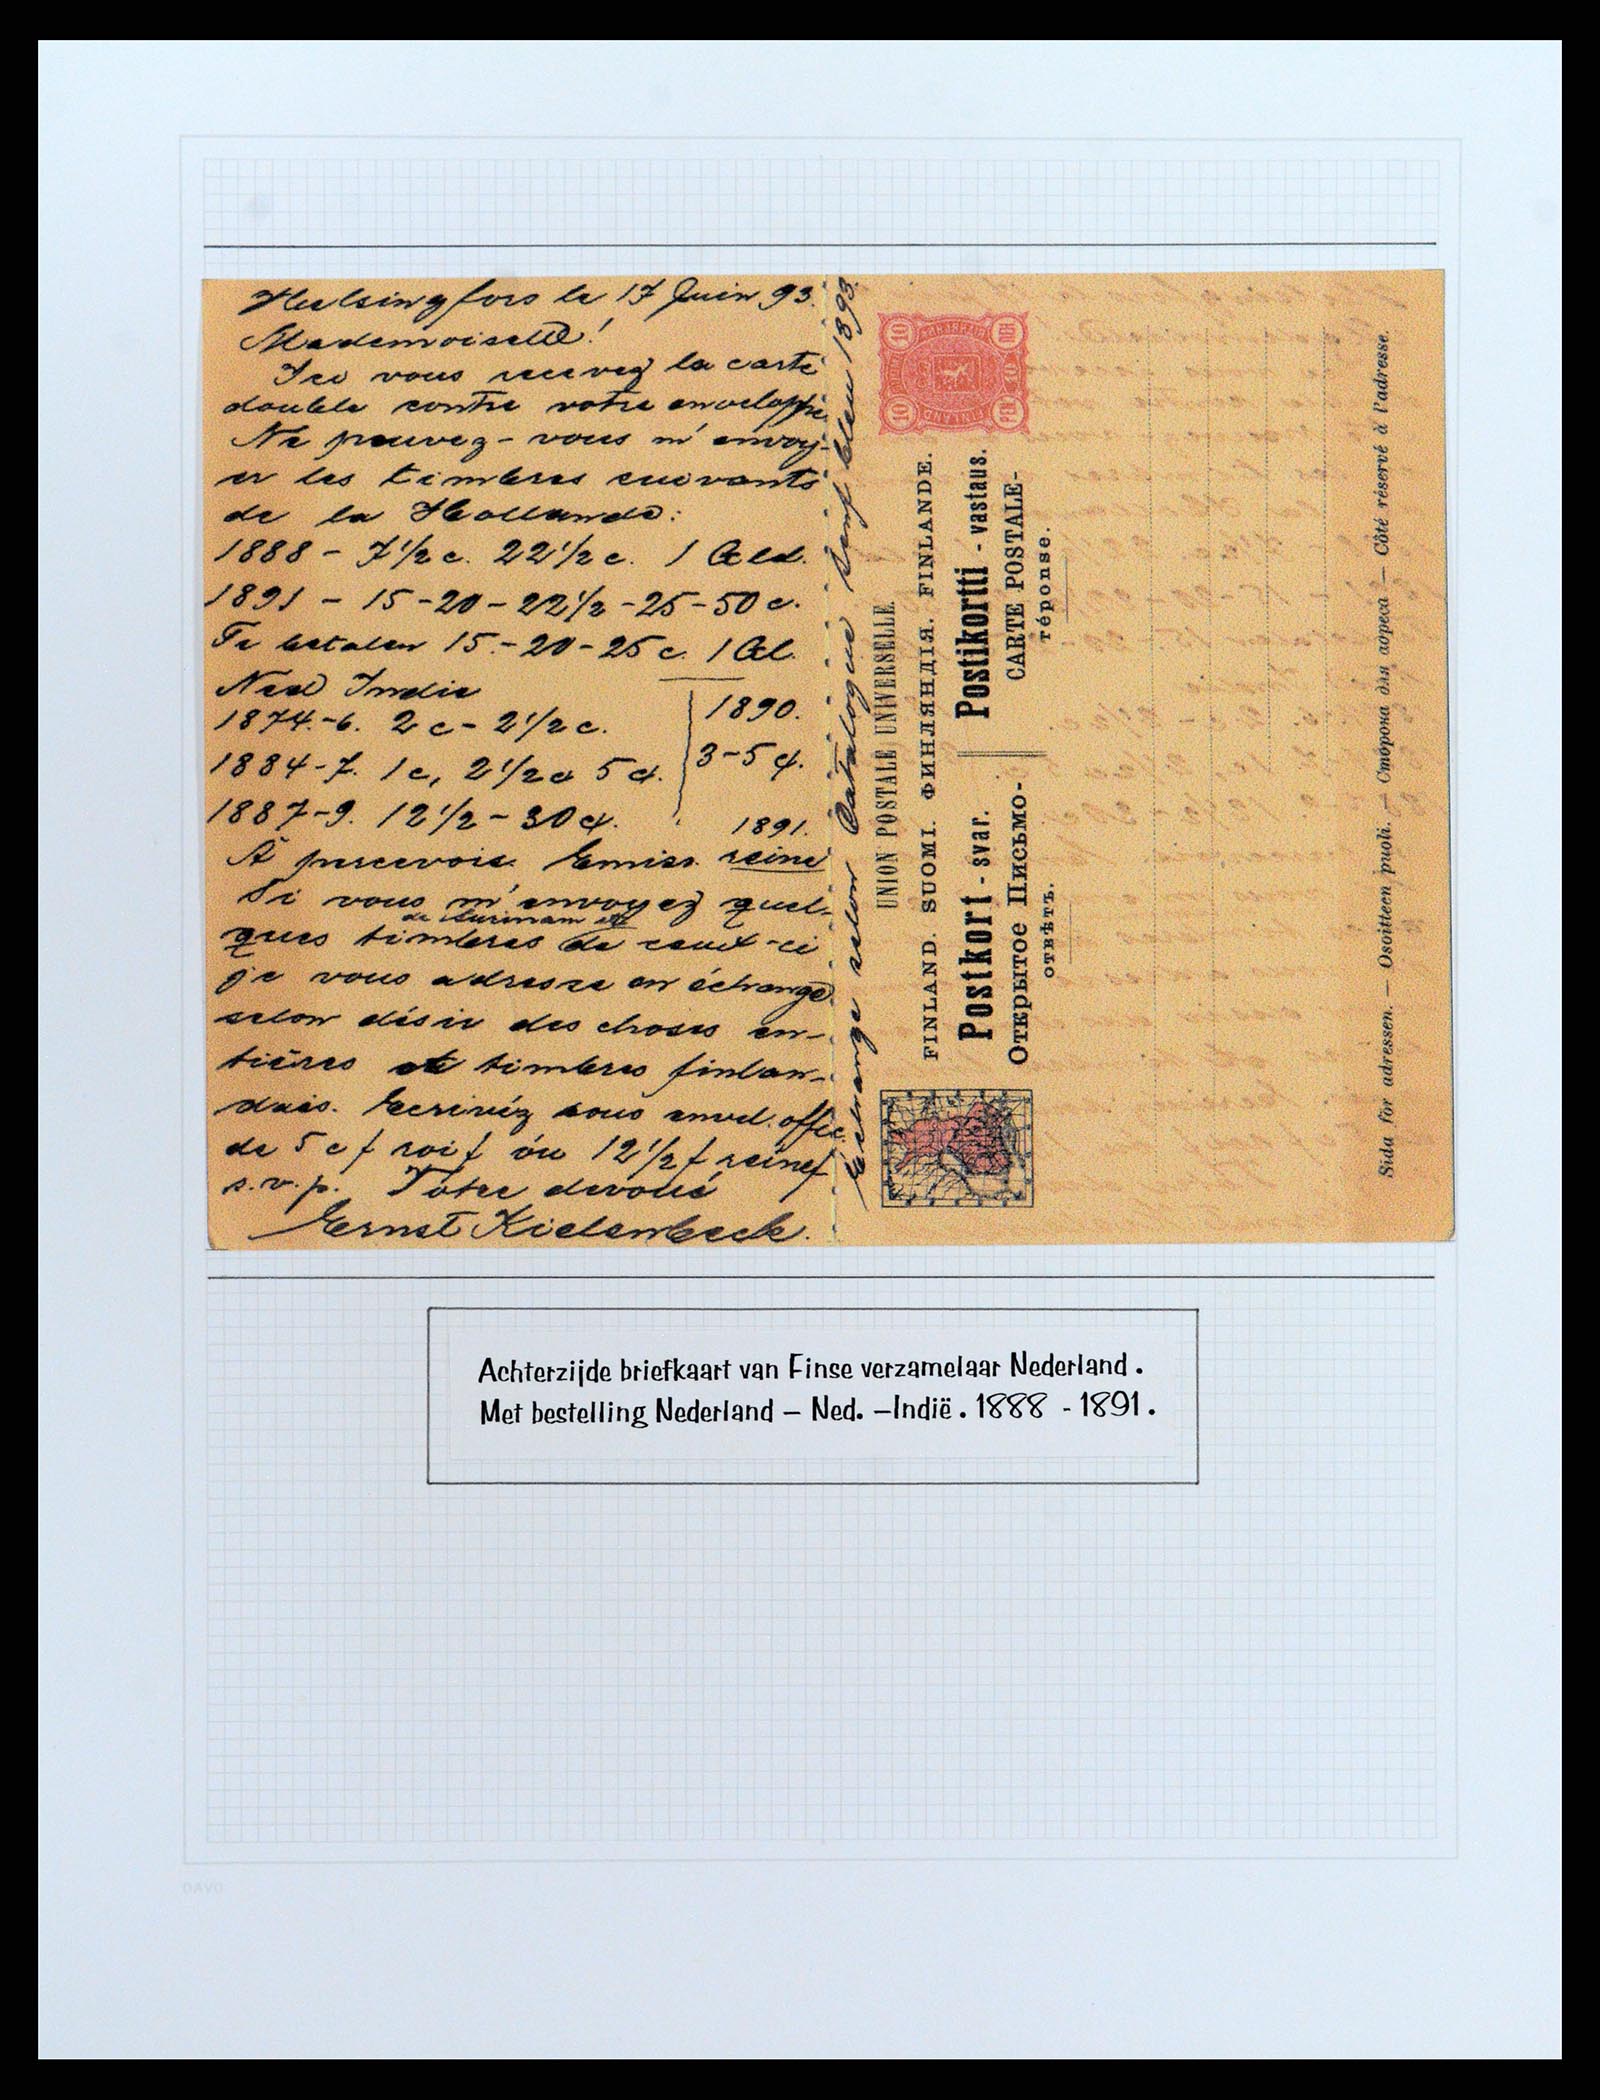 Helsingfors le 17 Juin 93.
Mademoiselle!
Ici vous recevez la carte
double contre votre enveloppe
Ne pouvez-vous m'envoy-
er les timbres suivants
de la Hollande:
1888 - 7½ c. 22½ c. 1 Gld.
1891 - 15-20-22½-25-50 c.
Te betalen 15.-20-25 c. 1 Gl.
Ned Indie
1874.-6. 2 c - 2½ c.
1884-7. 1 c, 2½ c 5 c.
1887-9. 12½ - 30 c.
1890.
3-5 c.
1891.
À percevoir Emiss. reine
Si vous m'envoyez quel-
de Surinam etc
ques timbres de ceux-ci
je vous adresse en échange
selon désir des choses en-
tières et timbres finlan-
dais. Ecrivéz sous envel. offic.
de 5 c f roi f óu 12½ f reine f
s.v.p. Votre devoué
Ernst Kielenbeck.
Echange selon Catalogue Senf 1893.
UNION POSTALE UNIVERSELLE.
FINLAND. SUOMI. ФИНЛЯНДІЯ. FINLANDE.
Postkort - svar. Postikortti - vastaus.
Открытое Письмо- CARTE POSTALE-
отвѣтъ. réponse.
10 10 10 10
Sida för adressen. — Osoitteen puoli. — Сторона для адреса — Côté réservé à l'adresse.
Achterzijde briefkaart van Finse verzamelaar Nederland .
Met bestelling Nederland – Ned. –Indië . 1888 - 1891 .
DAVO